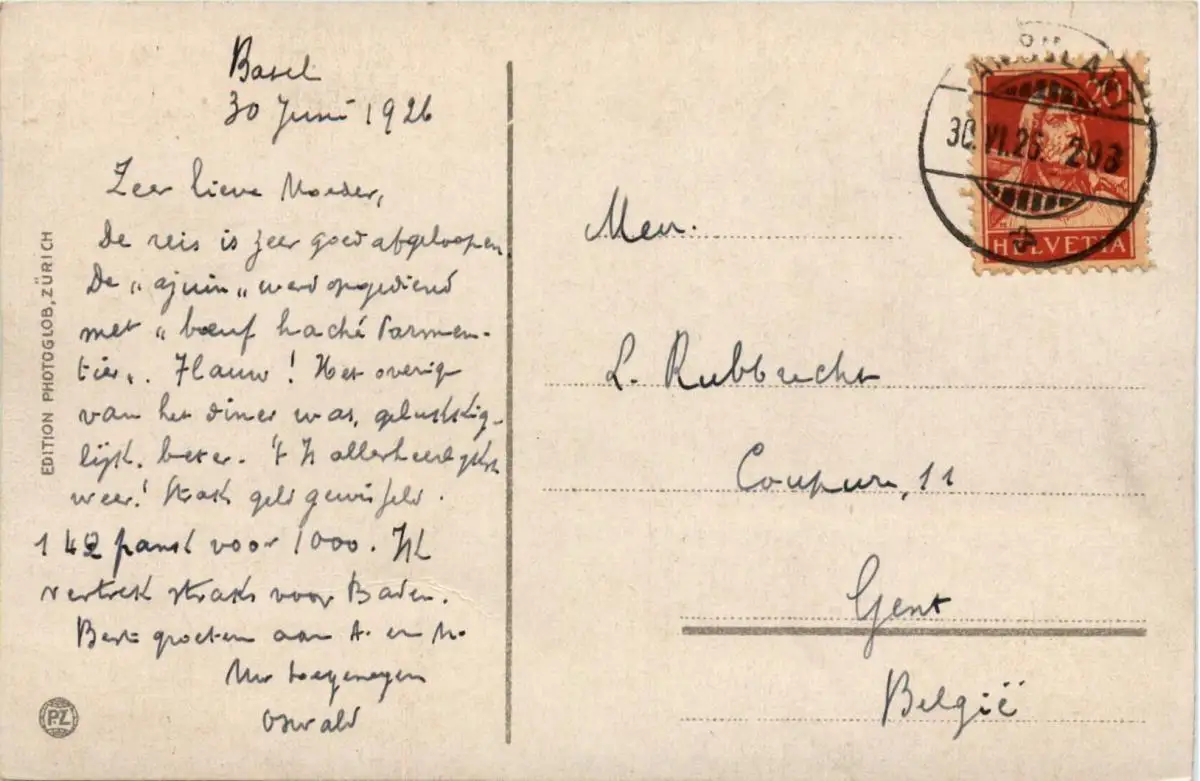 Basel
30 Juni 1926
Zeer lieve Moeder,
De reis is zeer goed afgeloopen
De „ajuin„ werd opgediend
met „bœuf haché Parmen-
tier„. Flauw! Het overige
van het diner was, gelukkig-
lijk, beter. 't Is allerheerlijkst
weer! Straks geld gewisseld.
142 frank voor 1000. Ik
vertrek straks voor Baden.
Beste groeten aan A. en M.
Uw toegenegen
Oswald
EDITION PHOTOGLOB, ZÜRICH
P.Z.
20
30.VI.26.
HELVETIA
Mevr.
L. Rubbrecht
Coupure, 11
Gent
België